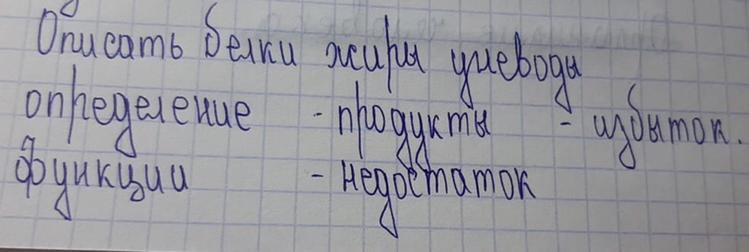 Описать белки жиры углеводы
определение - продукты - избыток.
функции - недостаток